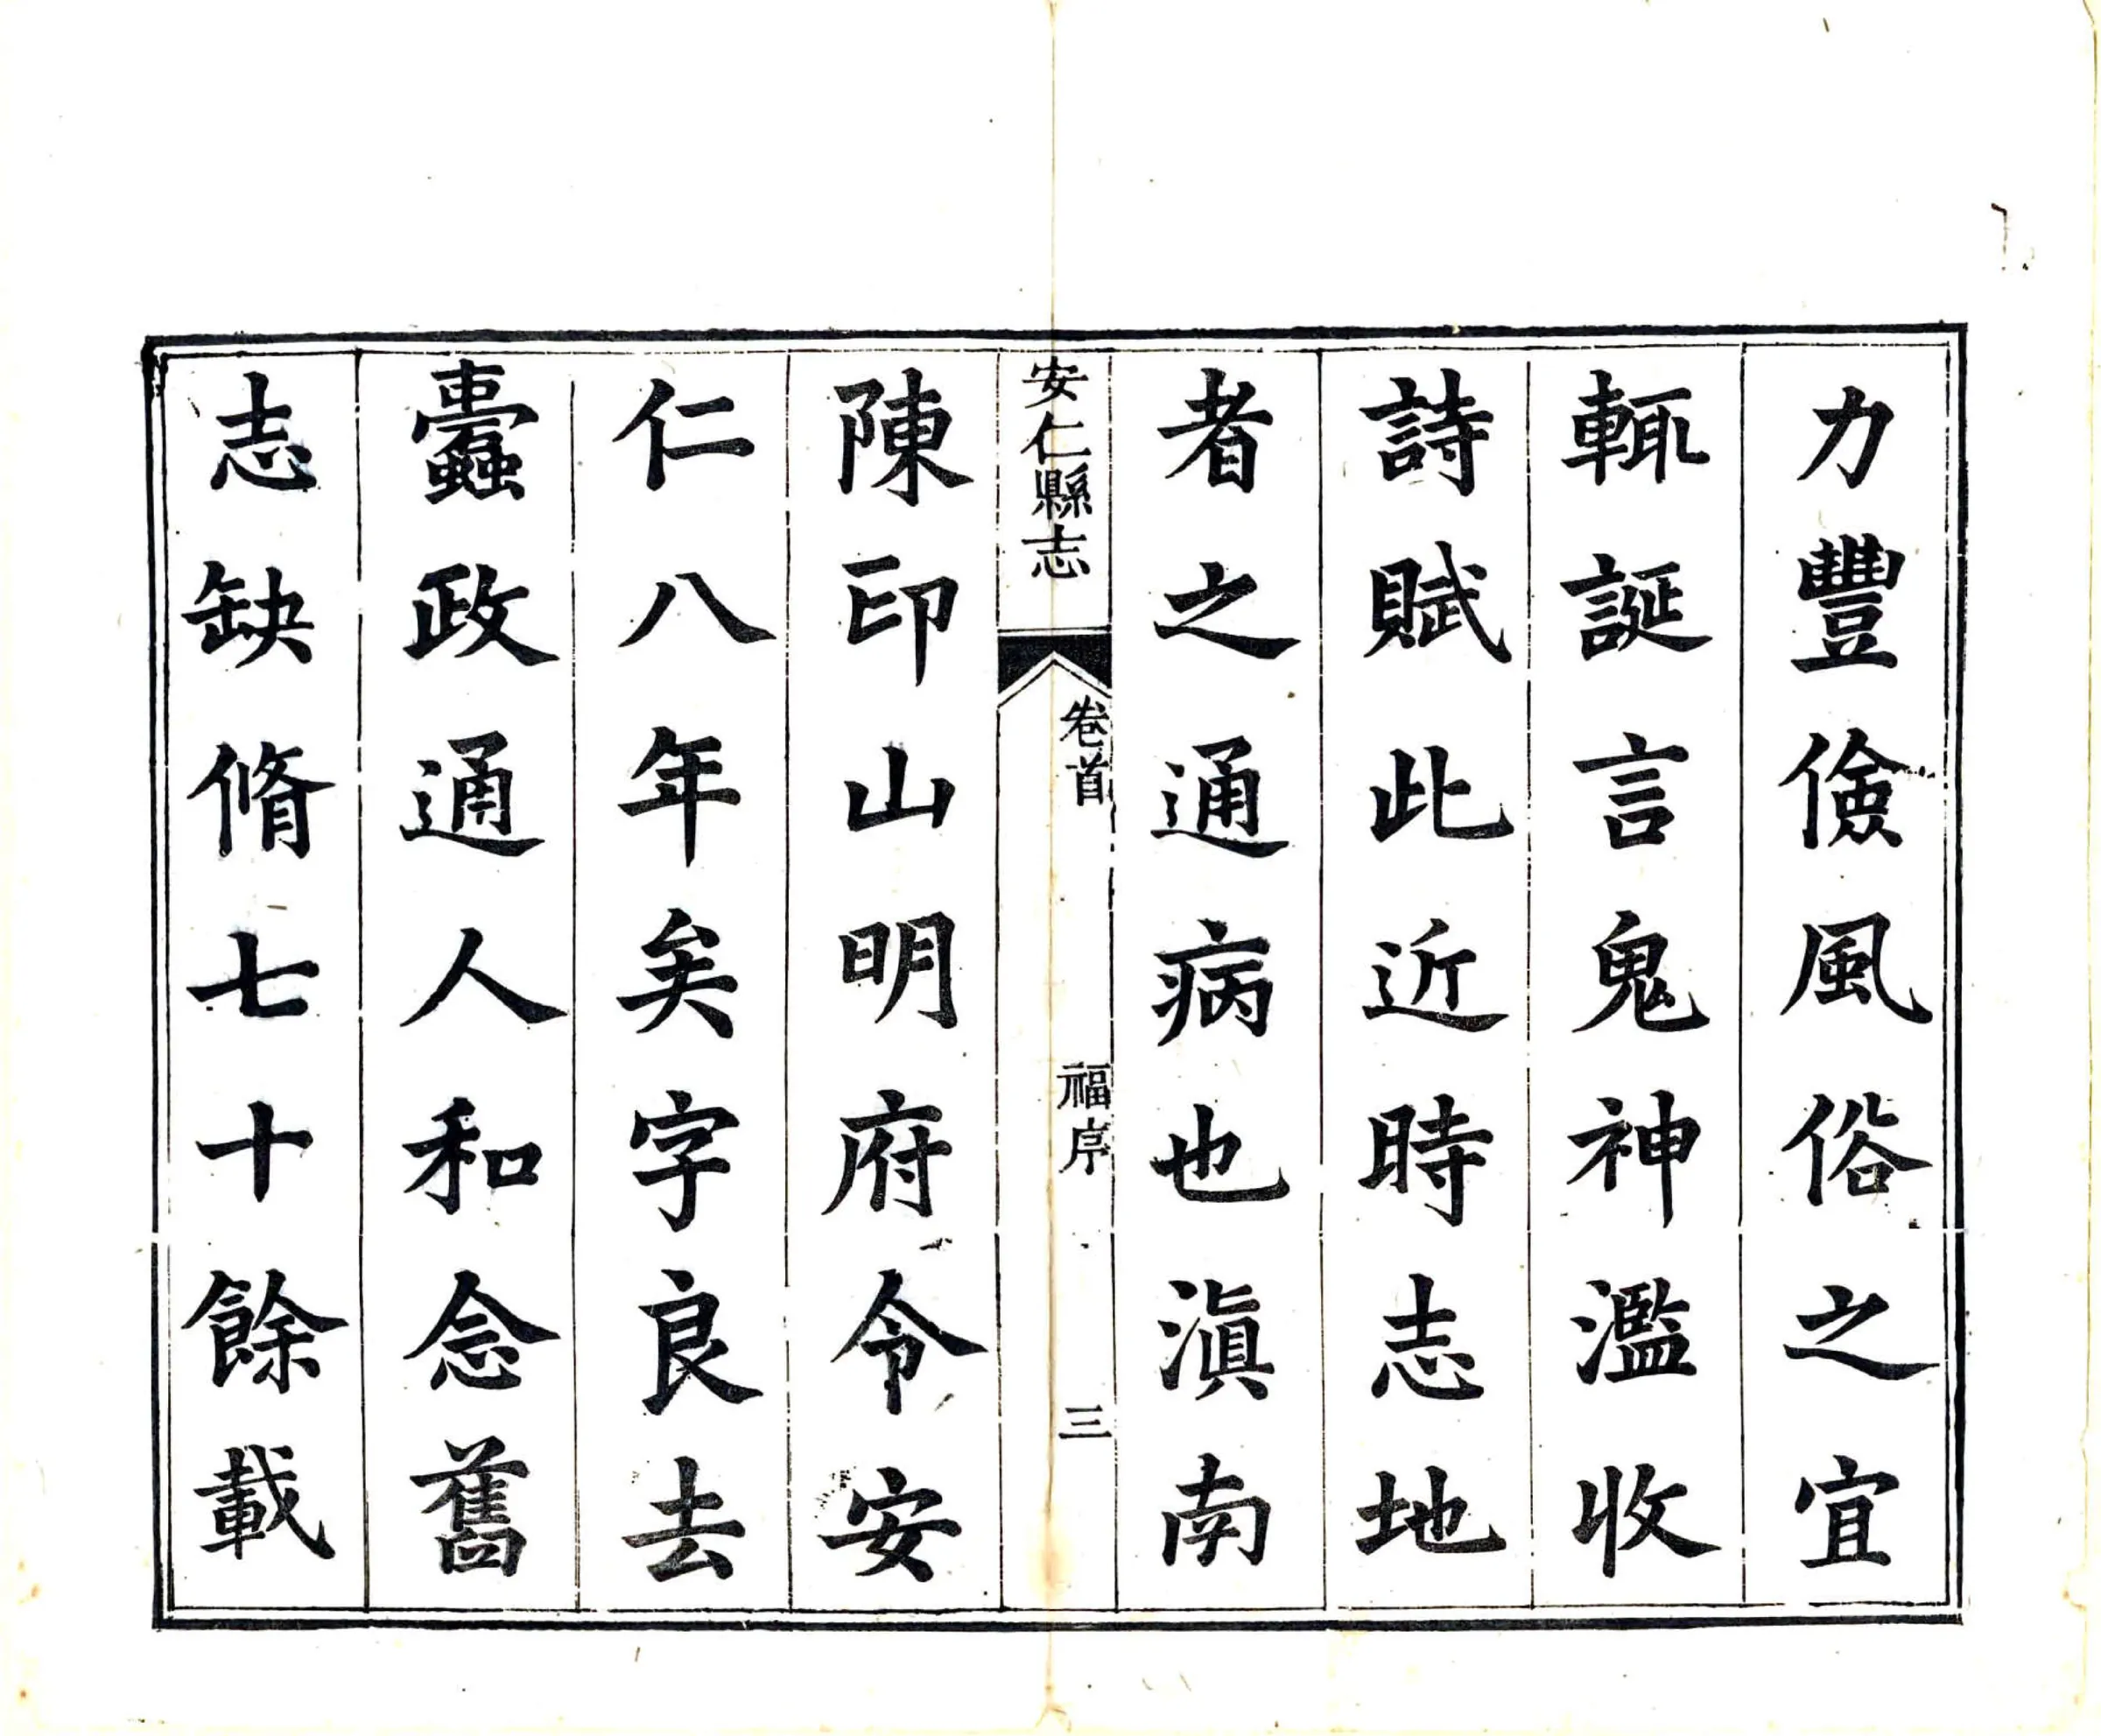 力豐儉風俗之宜
輒誕言鬼神濫收
詩賦此近時志地
者之通病也滇南
安仁縣志
卷首
福序
三
陳印山明府令安
仁八年矣字良去
蠹政通人和念舊
志缺脩七十餘載